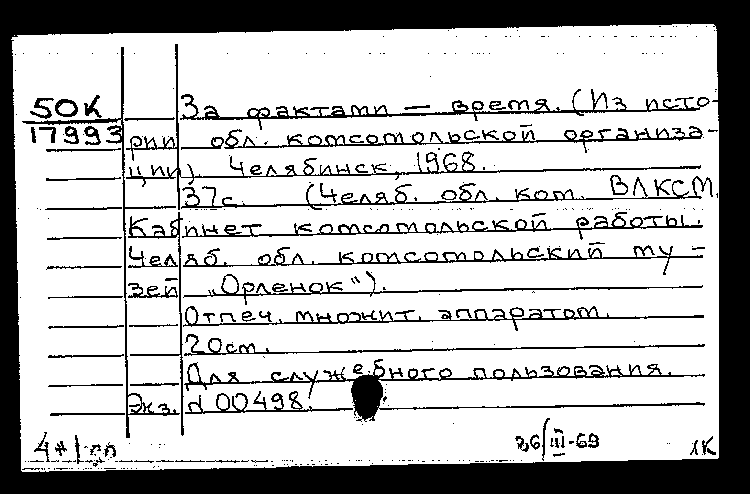 50К
17993
За фактами — время. (Из исто-
рии обл. комсомольской организа-
ции). Челябинск, 1968.
37с. (Челяб. обл. ком. ВЛКСМ.
Кабинет комсомольской работы.
Челяб. обл. комсомольский му-
зей „Орленок“).
Отпеч. множит. аппаратом.
20см.
Для служебного пользования.
Экз. N 00498.
26/III-69
1К